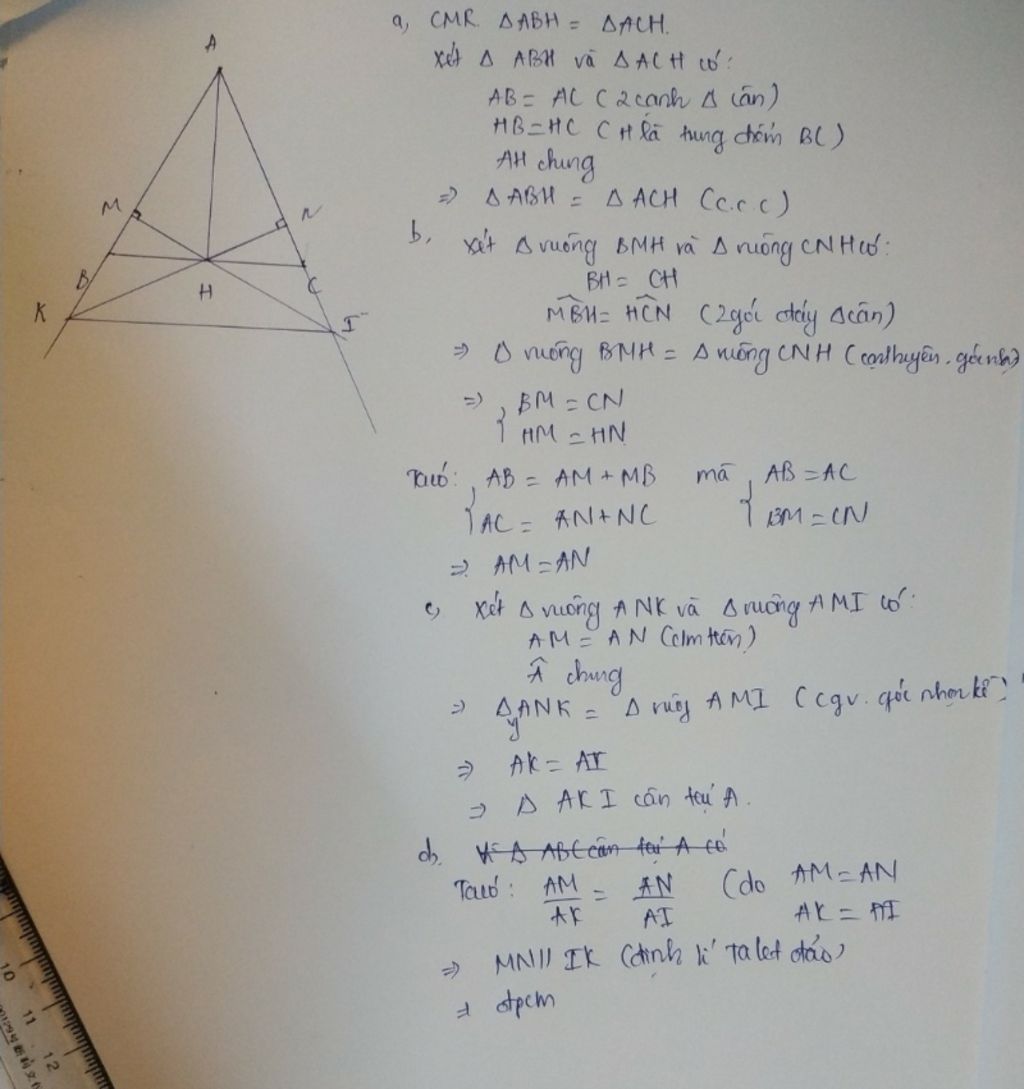 A
M
N
B
C
H
K
I
a, CMR ΔABH = ΔACH.
Xét Δ ABH và ΔACH có:
AB = AC (2 cạnh Δ cân)
HB = HC (H là trung điểm BC)
AH chung
=> ΔABH = ΔACH (c.c.c)
b, Xét Δ vuông BMH và Δ vuông CNH có:
BH = CH
MBH = HCN (2 góc đáy Δ cân)
=> Δ vuông BMH = Δ vuông CNH (cạnh huyền . góc nhọn)
=> { BM = CN
HM = HN
Ta có: { AB = AM + MB mà { AB = AC
AC = AN + NC BM = CN
=> AM = AN
c, Xét Δ vuông ANK và Δ vuông AMI có:
AM = AN (clm trên)
Â chung
=> Δ ANK = Δ vuông AMI (cgv. góc nhọn kề)
=> AK = AI
=> Δ AKI cân tại A.
d. Vì Δ ABC cân tại A có
Ta có: AM/AK = AN/AI (do AM = AN
AK = AI
=> MN // IK (định lí Talet đảo)
=> đpcm
10
11
12